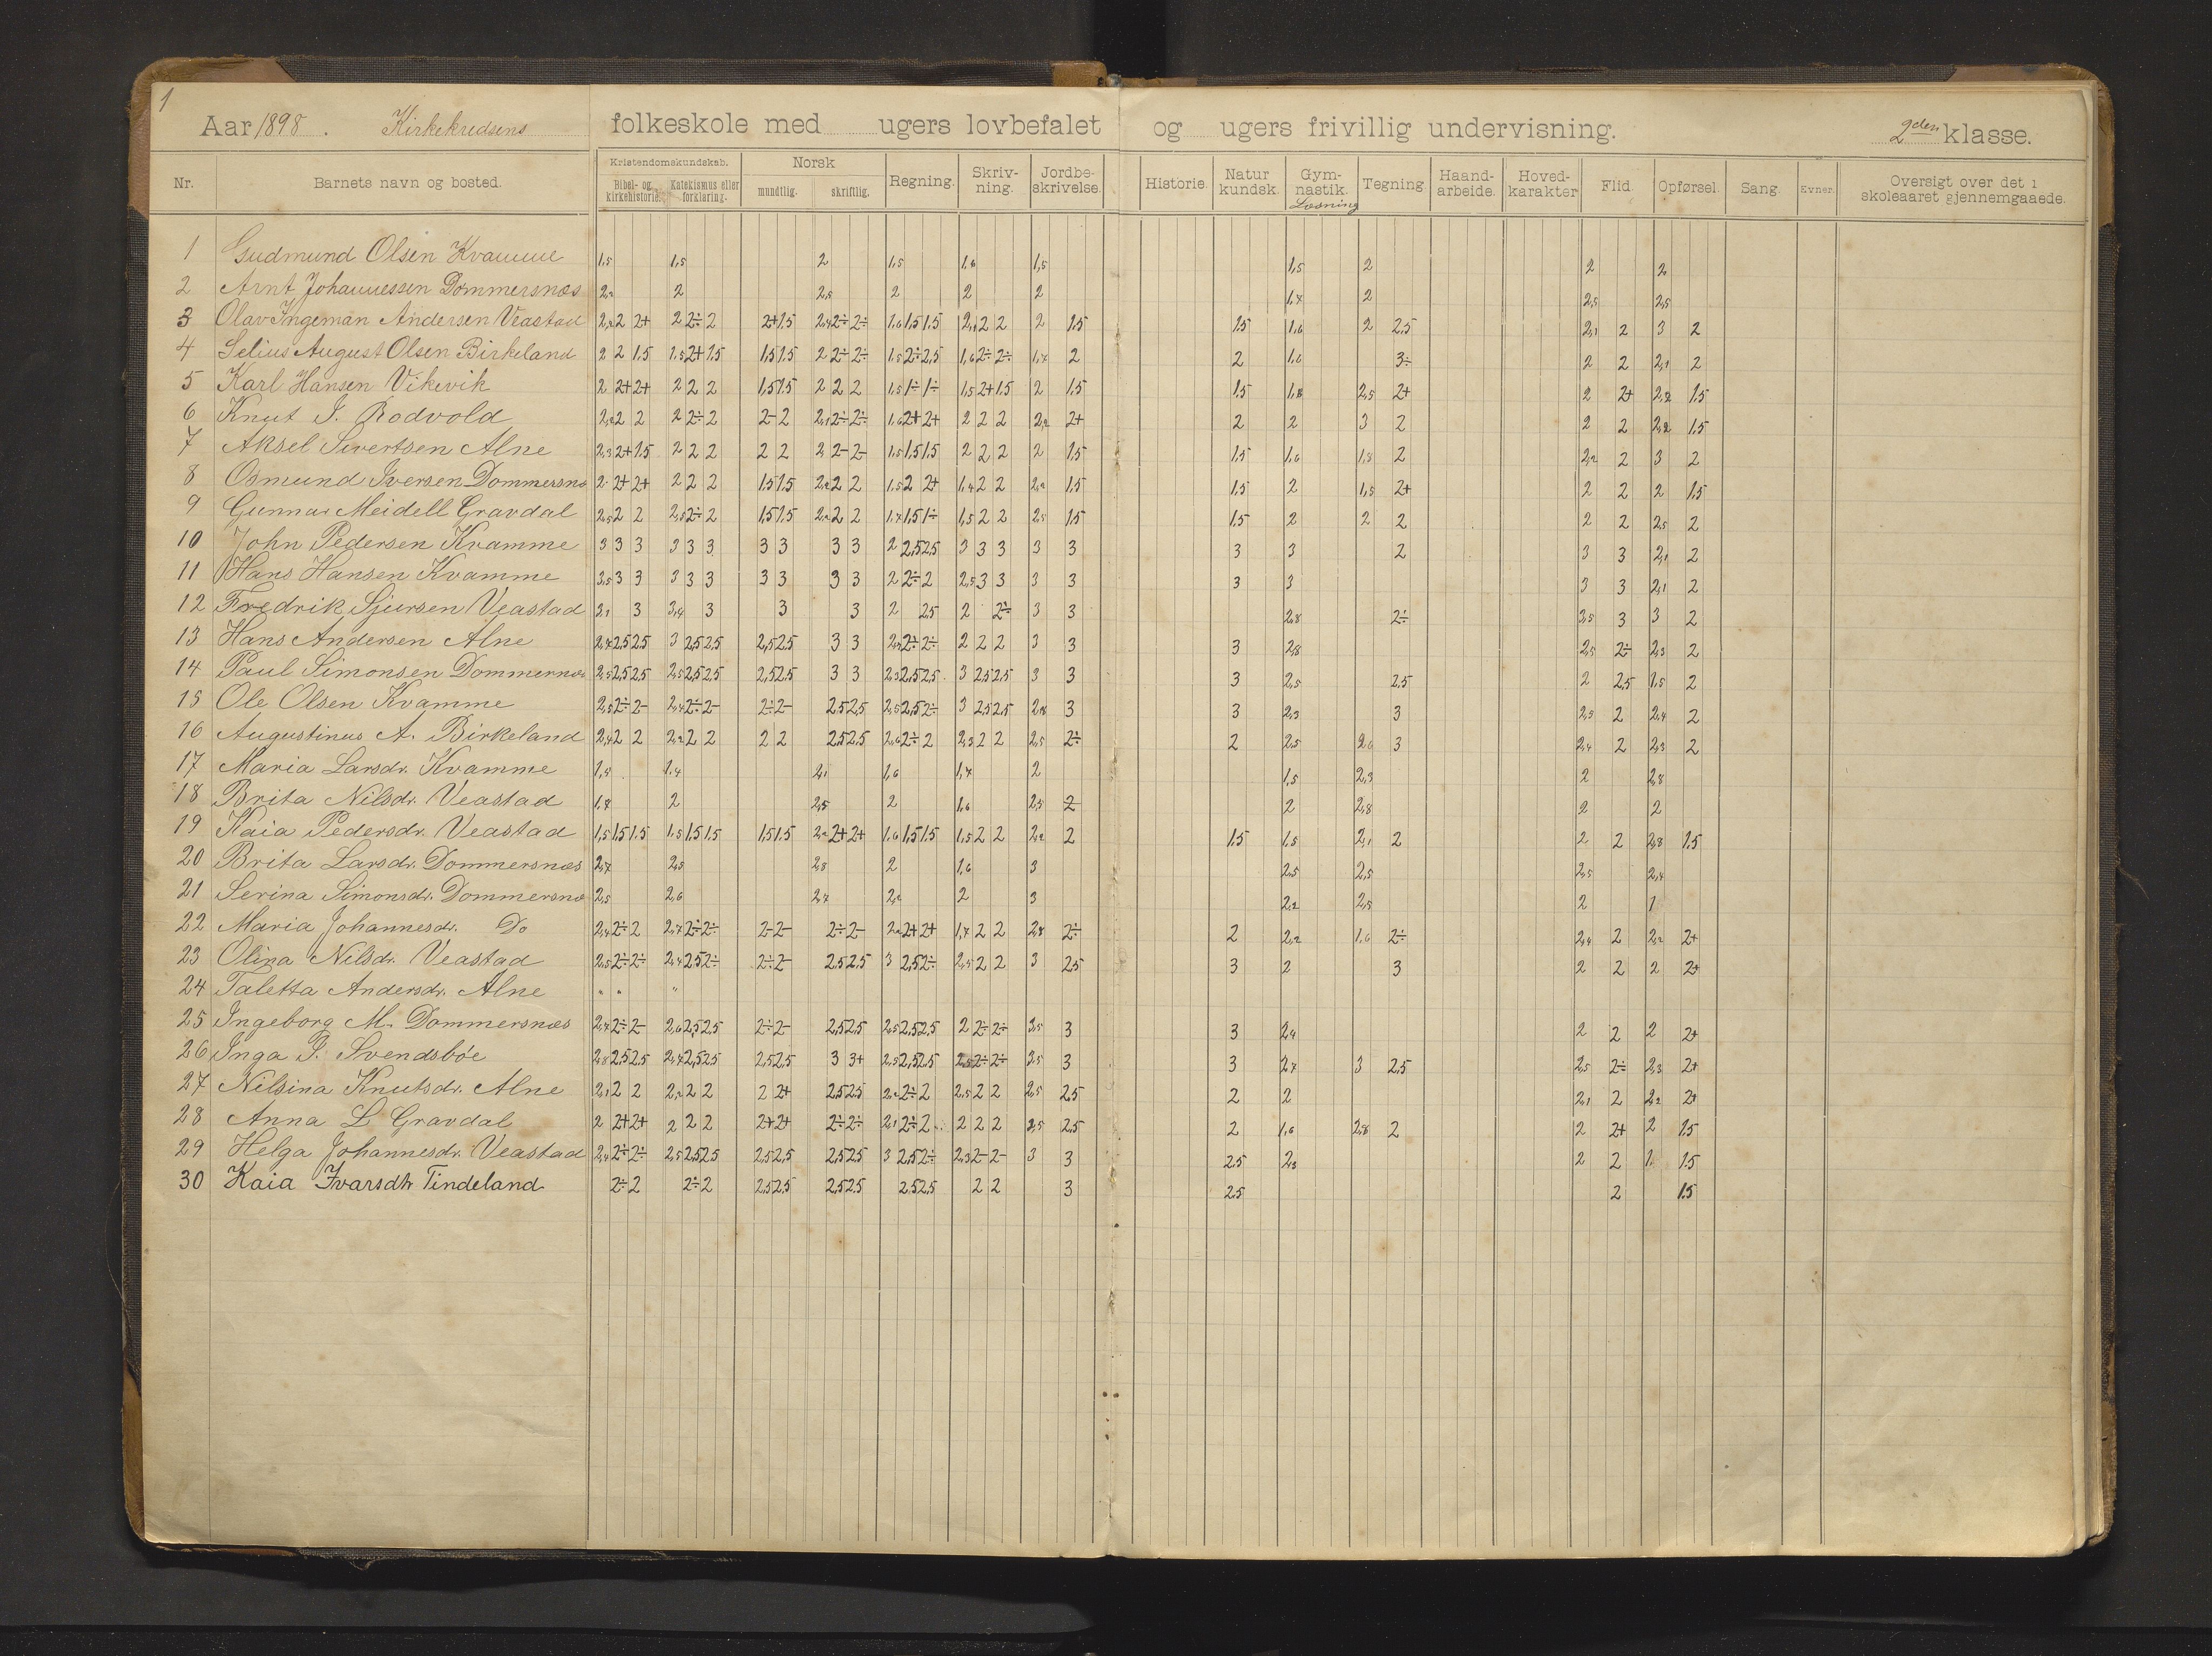 1
Aar 1898. Kirkekredsens folkeskole med ugers lovbefalet og ugers frivillig undervisning. 2den klasse.
Nr. Barnets navn og bosted. Kristendomskundskab. Bibel- og kirkehistorie. Katekismus eller forklaring. Norsk mundtlig. skriftlig. Regning. Skrivning. Jordbeskrivelse. Historie. Naturkundsk. Gymnastik. Læsning Tegning. Haandarbeide. Hovedkarakter Flid. Opførsel. Sang. Evner. Oversigt over det i skoleaaret gjennemgaaede.
1 Gudmund Olsen Kvamme 1,5 1,5 2 1,5 1,6 1,5 1,5 2 2 2
2 Arnt Johannessen Dommersnæs 2,2 2 2,5 2 2 2 1,7 2 2,5 2,5
3 Olav Ingeman Andersen Veastad 2,2 2 2+ 2 2÷ 2 2+ 1.5 2,4 2÷ 2÷ 1.6 1.5 1.5 2,1 2 2 2 1.5 1.5 1,6 2 2,5 2,1 2 3 2
4 Selius August Olsen Birkeland 2 2 1.5 1.5 2+ 1.5 1.5 1.5 2 2÷ 2÷ 1.5 2÷ 2,5 1,6 2÷ 2÷ 1,7 2 2 1,6 3÷ 2 2 2,1 2
5 Karl Hansen Vikevik 2 2+ 2+ 2 2 2 1.5 1.5 2 2 2 1.5 1÷ 1÷ 1,5 2+ 1.5 2 1.5 1.5 1,8 2,5 2+ 2 2+ 2,2 1.5
6 Knut J. Rodvold 2,2 2 2 2 2÷ 2 2- 2 2,1 2÷ 2÷ 1.6 2+ 2+ 2 2 2 2,2 2+ 2 2 3 2 2 2 2,2 1.5
7 Aksel Sivertsen Alne 2,3 2+ 1.5 2 2 2 2 2 2 2- 2- 1.5 1.5 1.5 2 2 2 2 1.5 1.5 1,6 1,8 2 2,2 2 3 2
8 Osmund Iversen Dommersnæs 2 2+ 2+ 2 2 2 1.5 1.5 2,2 2 2 1.5 2 2+ 1,4 2 2 2,2 1.5 1.5 2 1,5 2+ 2 2 2 1.5
9 Gunnar Meidell Gravdal 2,5 2 2 2,5 2÷ 2 1.5 1.5 2,2 2 2 1,7 1,5 1÷ 1,5 2 2 2,5 1.5 1.5 2 2 2 2 2 2,5 2
10 John Pedersen Kvamme 3 3 3 3 3 3 3 3 3 3 2 2,5 2,5 3 3 3 3 3 3 3 2 3 3 2,1 2
11 Hans Hansen Kvamme 3,5 3 3 3 3 3 3 3 3 3 2 2÷ 2 2,5 3 3 3 3 3 3 3 3 2,1 2
12 Fredrik Sjursen Veastad 2,1 3 3,4 3 3 3 2 2,5 2 2÷ 3 3 2,8 2÷ 3,5 3 3 2
13 Hans Andersen Alne 2,7 2,5 2,5 3 2,5 2,5 2,5 2,5 3 3 2,3 2÷ 2÷ 2 2 2 3 3 3 2,8 2,5 2÷ 2,3 2
14 Paul Simonsen Dommernæs 2,5 2,5 2,5 2,5 2,5 2,5 2,5 2,5 3 3 2,3 2,5 2,5 3 2,5 2,5 3 3 3 2,5 2,5 2 2,5 1,5 2
15 Ole Olsen Kvamme 2,5 2÷ 2- 2,4 2÷ 2- 2÷ 2- 2,5 2,5 2,5 2,5 2÷ 3 2,5 2,5 2,8 3 3 2,3 3 2,5 2 2,4 2
16 Augustinus A. Birkeland 2,4 2 2 2,2 2 2 2 2 2,5 2,5 2,6 2÷ 2 2,3 2 2 2,5 2÷ 2 2,5 2,6 3 2,4 2 2,3 2
17 Maria Larsdr. Kvamme 1,5 1,4 2,1 1,6 1,7 2 1,5 2,3 2 2,8
18 Brita Nilsdr. Veastad 1,7 2 2,5 2 1,6 2,5 2 2 2,8 2 2
19 Kaia Pedersdr. Veastad 1,5 1.5 1.5 1.5 1.5 1.5 1.5 1.5 2,2 2+ 2+ 1.6 1.5 1.5 1,5 2 2 2,2 2 1.5 1,5 2,1 2 2 2 2,8 1.5
20 Brita Larsdr. Dommersnæs 2,7 2,5 2,8 2 1,6 3 2,5 2,5 2,5 2,4
21 Serina Simonsdr. Dommersnæs 2,5 2,6 2,7 2,2 2 3 2,2 2,5 2 1
22 Maria Johannesdr. Do 2,4 2÷ 2 2,7 2÷ 2÷ 2- 2- 2÷ 2- 2,2 2+ 2+ 1,7 2 2 2,8 2÷ 2 2,2 1,6 2÷ 2,4 2 2,2 2+
23 Olina Nilsdr. Veastad 2,5 2÷ 2÷ 2,4 2,5 2÷ 2÷ 2- 2,5 2,5 3 2,5 2÷ 2,5 2 2 3 2,5 3 2 3 2 2 2 2+
24 Taletta Andersdr. Alne " " "
25 Ingeborg M. Dommersnæs 2,7 2÷ 2- 2,6 2,5 2,5 2÷ 2- 2,5 2,5 2,5 2,5 2,5 2 2÷ 2÷ 3,5 3 3 2,4 2 2 2 2+
26 Inga P. Svendsbøe 2,8 2,5 2,5 2,7 2,5 2,5 2,5 2,5 3 3+ 2,3 2,5 2,5 2,5 2÷ 2÷ 3,5 3 3 2,7 3 2,5 2,5 2÷ 2,3 2+
27 Nilsina Knutsdr. Alne 2,1 2 2 2,2 2 2 2 2+ 2,5 2,5 2,2 2÷ 2 2,5 2 2 2,5 2,5 2 2 2,1 2 2,2 2+
28 Anna L Gravdal 2 2+ 2+ 2 2 2 2+ 2+ 2÷ 2÷ 2,1 2÷ 2 2 2 2 2,5 2,5 2 1,6 2,8 2 2 2+ 2 1.5
29 Helga Johannesdr. Veastad 2,4 2÷ 2÷ 2,5 2,5 2,5 2,5 2,5 2,5 2,5 3 2,5 2÷ 2,3 2- 2- 3 3 2.5 2,3 2 2 1 1.5
30 Kaia Ivarsdtr Tindeland 2÷ 2 2÷ 2 2,5 2,5 2,5 2,5 2,5 2,5 2 2 3 2.5 2 1.5